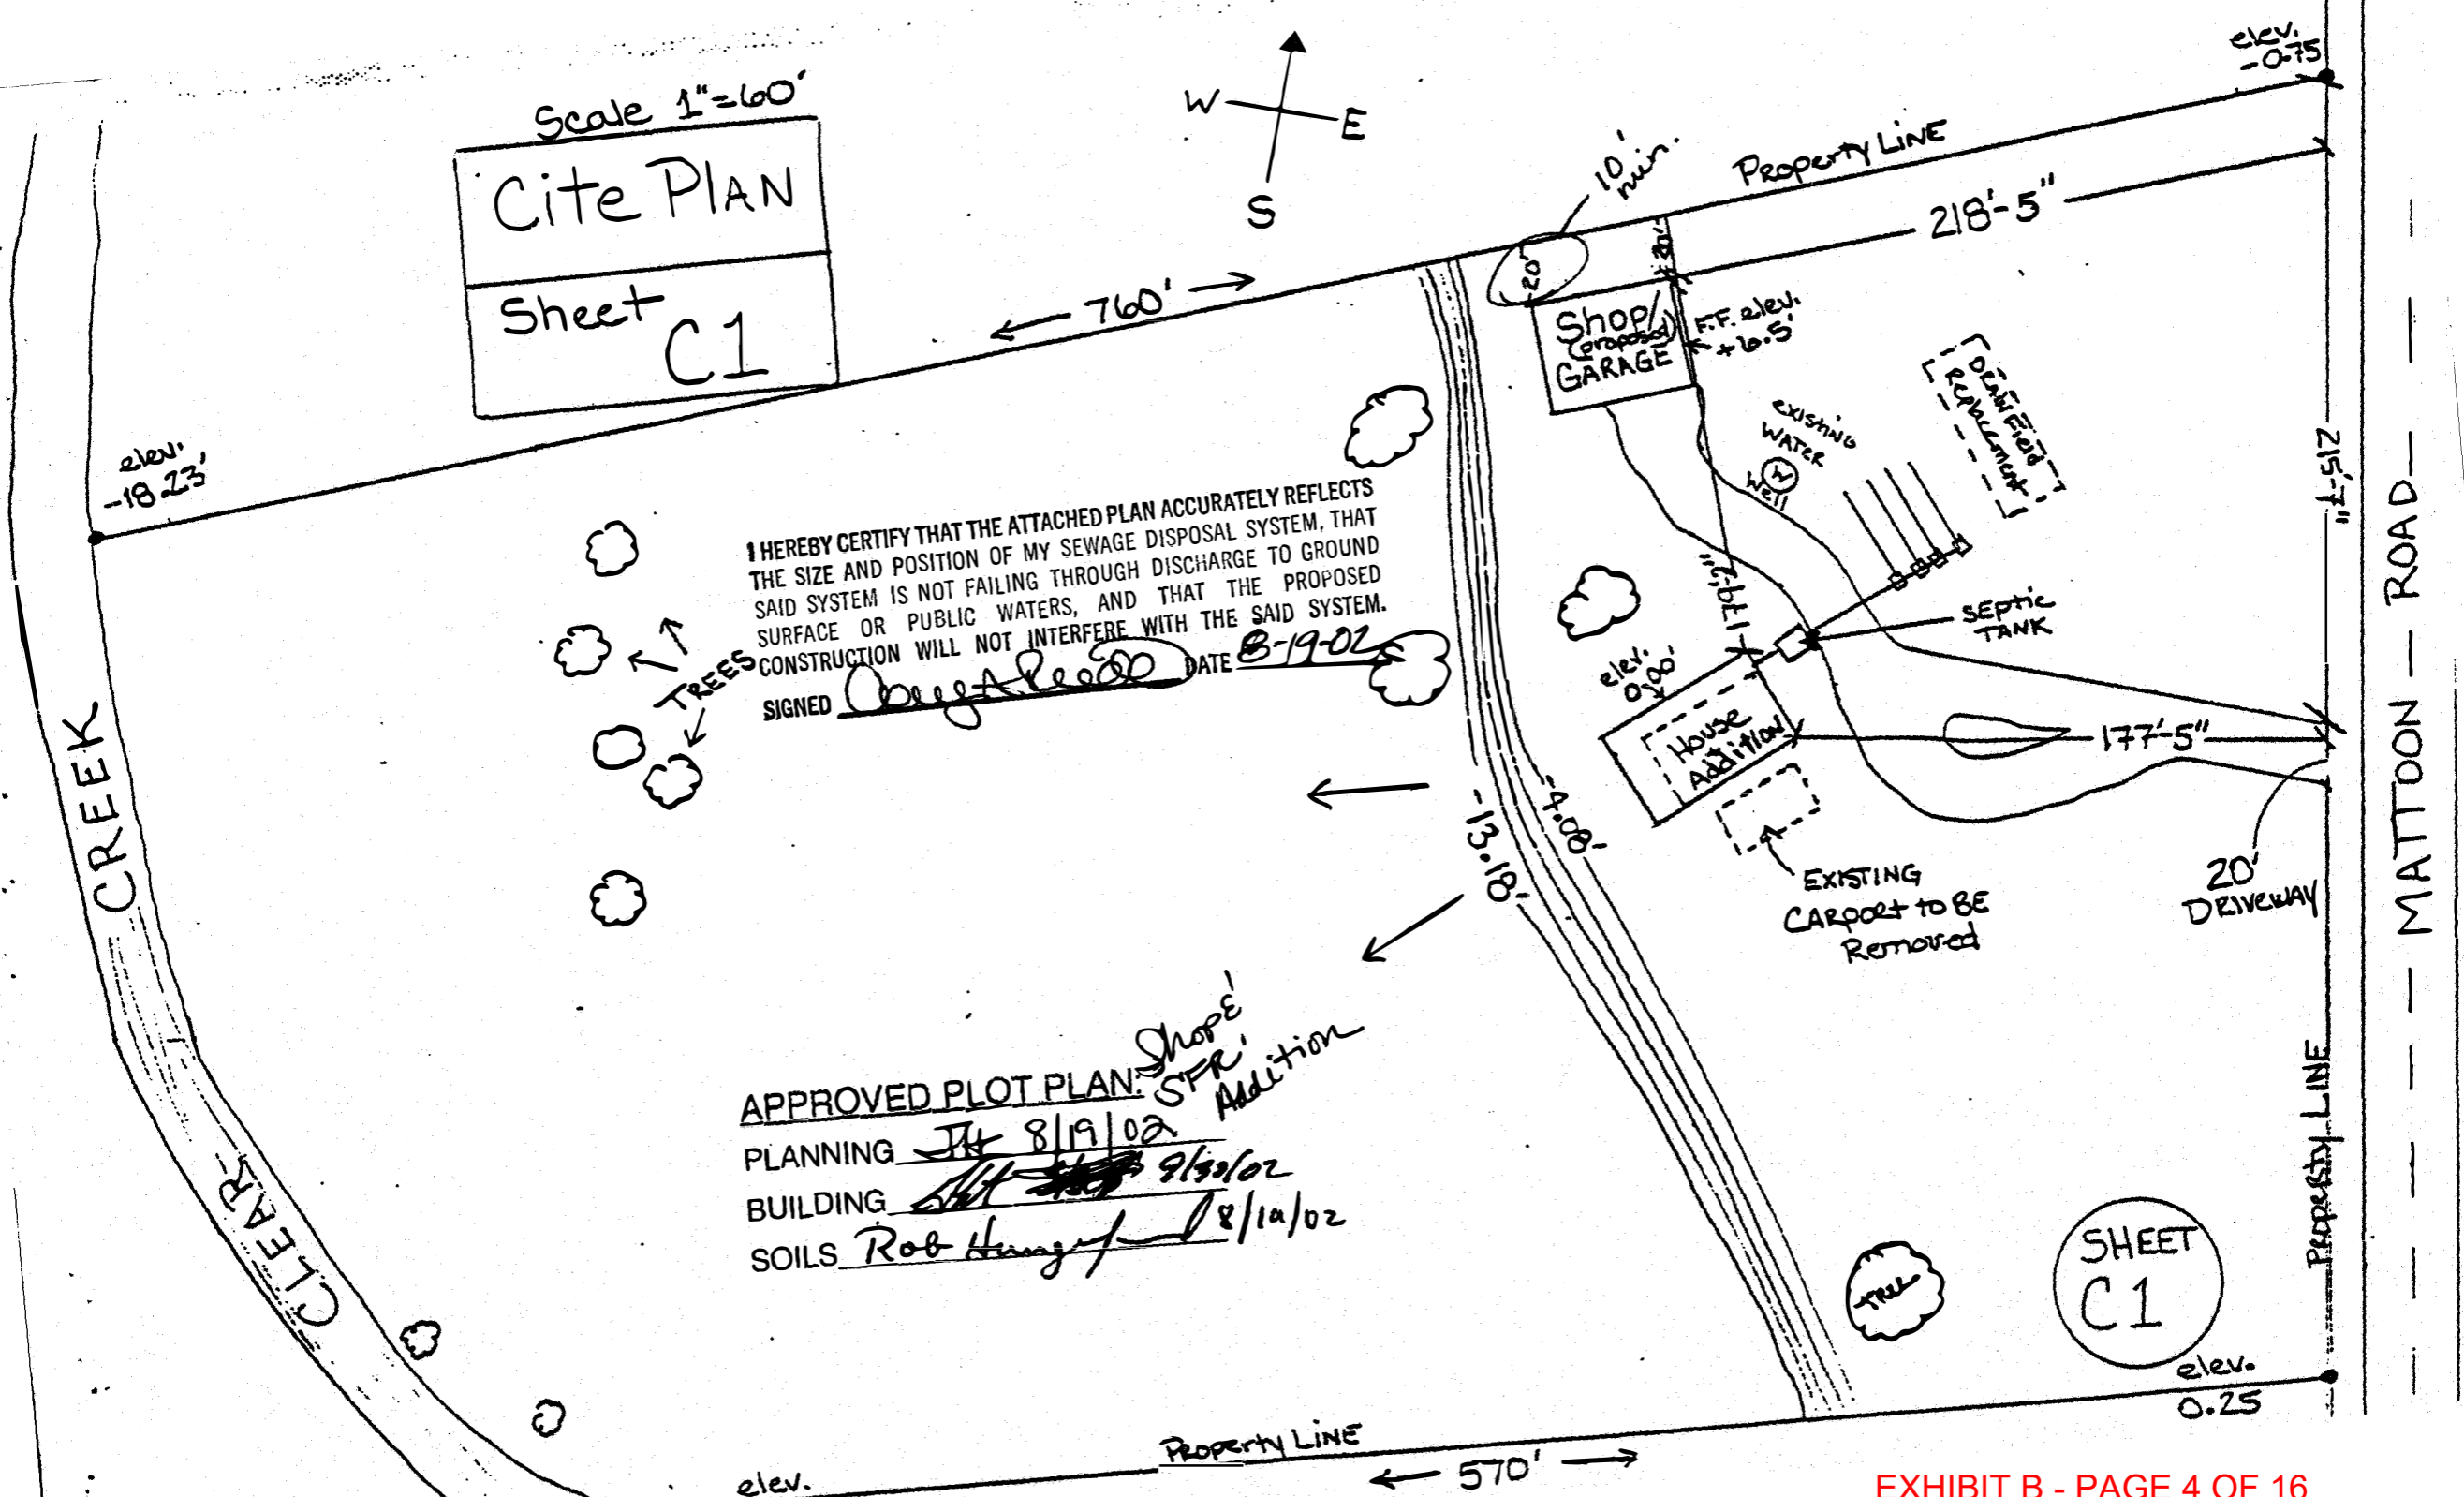 elev.
-0.75
Scale 1"=60'
Cite PLAN
Sheet
C1
W
E
S
10'
min.
Property LINE
218'-5"
← 760' →
20'
20'
Shop/
(proposed)
GARAGE
F.F. elev.
+6.5'
Drain Field
Replacement
existing
WATER
Well
215'-7"
elev.
-18.23'
I HEREBY CERTIFY THAT THE ATTACHED PLAN ACCURATELY REFLECTS
THE SIZE AND POSITION OF MY SEWAGE DISPOSAL SYSTEM, THAT
SAID SYSTEM IS NOT FAILING THROUGH DISCHARGE TO GROUND
SURFACE OR PUBLIC WATERS, AND THAT THE PROPOSED
CONSTRUCTION WILL NOT INTERFERE WITH THE SAID SYSTEM.
SIGNED DATE 8-19-02
TREES
SEPTIC
TANK
elev.
0.00'
House
Addition
177'-5"
-4.08-
-13.18'-
EXISTING
CARPORT TO BE
Removed
20'
DRIVEWAY
MATTOON ROAD
CLEAR CREEK
APPROVED PLOT PLAN: Shop &
SFR
Addition
PLANNING JH 8/19/02
BUILDING 9/30/02
SOILS Rob 8/19/02
Property LINE
SHEET
C1
TREE
elev.
0.25
Property LINE
← 570' →
elev.
EXHIBIT B - PAGE 4 OF 16